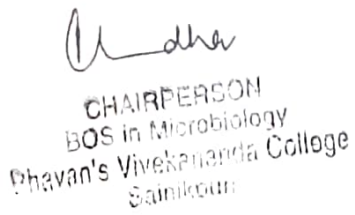 CHAIRPERSON
BOS in Microbiology
Bhavan's Vivekananda College
Sainikpuri